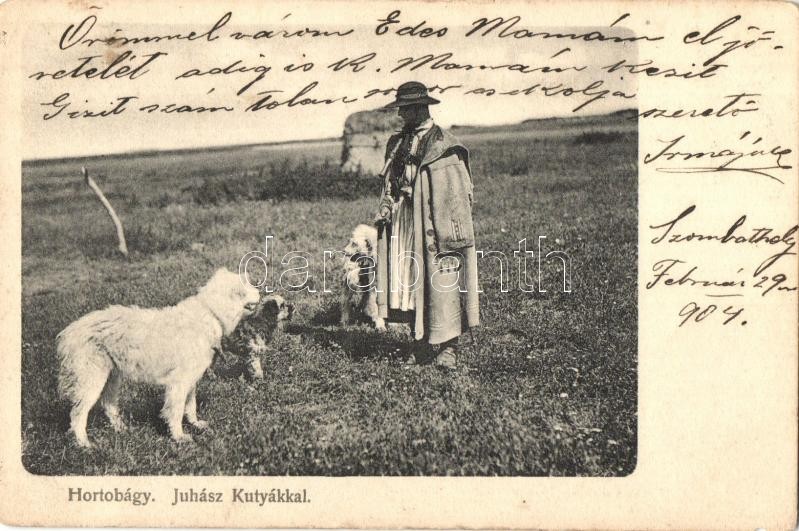 Örömmel várom Édes Mamám eljö-
retelét adig is k. Mamám kezeit
Gizit szám talan szor csókolja
szerető
Irmájuk
Szombathely
Február 29én
904.
darabanth
Hortobágy. Juhász Kutyákkal.